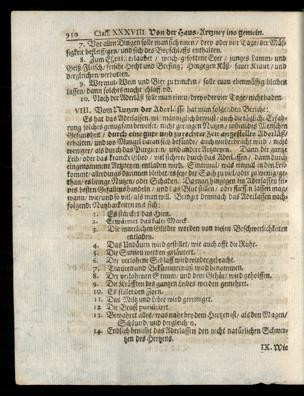 910 Class. XXXVIII. Von der Haus-Artzney ins gemein.
7. Vor allen Dingen solle man sich einen / drey oder vier Tage / der Mäs-
sigkeit befleissigen / und sich des Beyschlaffs enthalten.
8. Zum Essen / erlaubet / weich-gesottene Eyer / junges Lamm- und
Geiß-Fleisch / frische Hecht und Persing; Hingegen Käß / saure Kraut / und
dergleichen / verbotten.
9. Wermut-Wein und Bier zu trincken / solle man ebenmässig bleiben
lassen / dann solches macht schlaff
10. Nach der Aderläß solle man einen / drey oder vier Tage / nicht baden.
VIII. Vom Nutzen der Aderlässe hat man folgenden Bericht.
Es hat das Aderlassen / wie männiglich bewust / auch die tägliche Erfah-
rung solches genugsam beweiset / nicht geringen Nutzen / angesehen des Menschen
Gesundheit / durch eine gute und zu rechter Zeit angestellte Aderlässe /
erhalten / und wo Mangel daran sich befindet / auch wiederbracht wird / nicht
weniger / als durch das Purgieren / und andere Artzneyen. Dann der gantze
Leib / oder das krancke Glied / viel sicherer durch das Aderlassen / dann durch
eingenommene Artzneyen erleichtert wird.
kommt / allerdings daheimen bleibet / es seye der Sach zu viel / oder zu wenig / ge-
than / es bringe Nutzen / oder Schaden. Da man hingegen im Aderlassen sei-
nes besten Gefallens handeln / und das Blut stillen / oder fliessen lassen mag /
wann / wie / und so viel / als man will. Bringet demnach das Aderlassen nach-
folgende Nutzbarkeiten mit sich:
1. Es stärcket das Hirn.
2. Erwärmet das kalte Marck.
3. Die innerlichen Glieder werden von vielen Beschwerlichkeiten
entladen.
4. Das Undäuen wird gestillet / wie auch offt die Ruhr.
5. Die Sinnen werden geläutert.
6. Der verlohrne Schlaff wird wiedergebracht.
7. Trauren und Bekümmernüß wird benommen.
8. Der verlohrnen Stimm / und dem Gehör / wird geholffen.
9. Die Kräfften des gantzen Leibes werden gemehret.
10. Es stillet den Zorn.
11. Das Miltz und Leber wird gereiniget.
12. Die Brust purificirt.
13. Bewahret alles / was nahe bey dem Hertzen ist / als den Magen /
Schlund / und dergleichen.
14. Endlich benimmt das Aderlassen den nicht natürlichen Schmer-
tzen des Hertzens.
IX. Wie